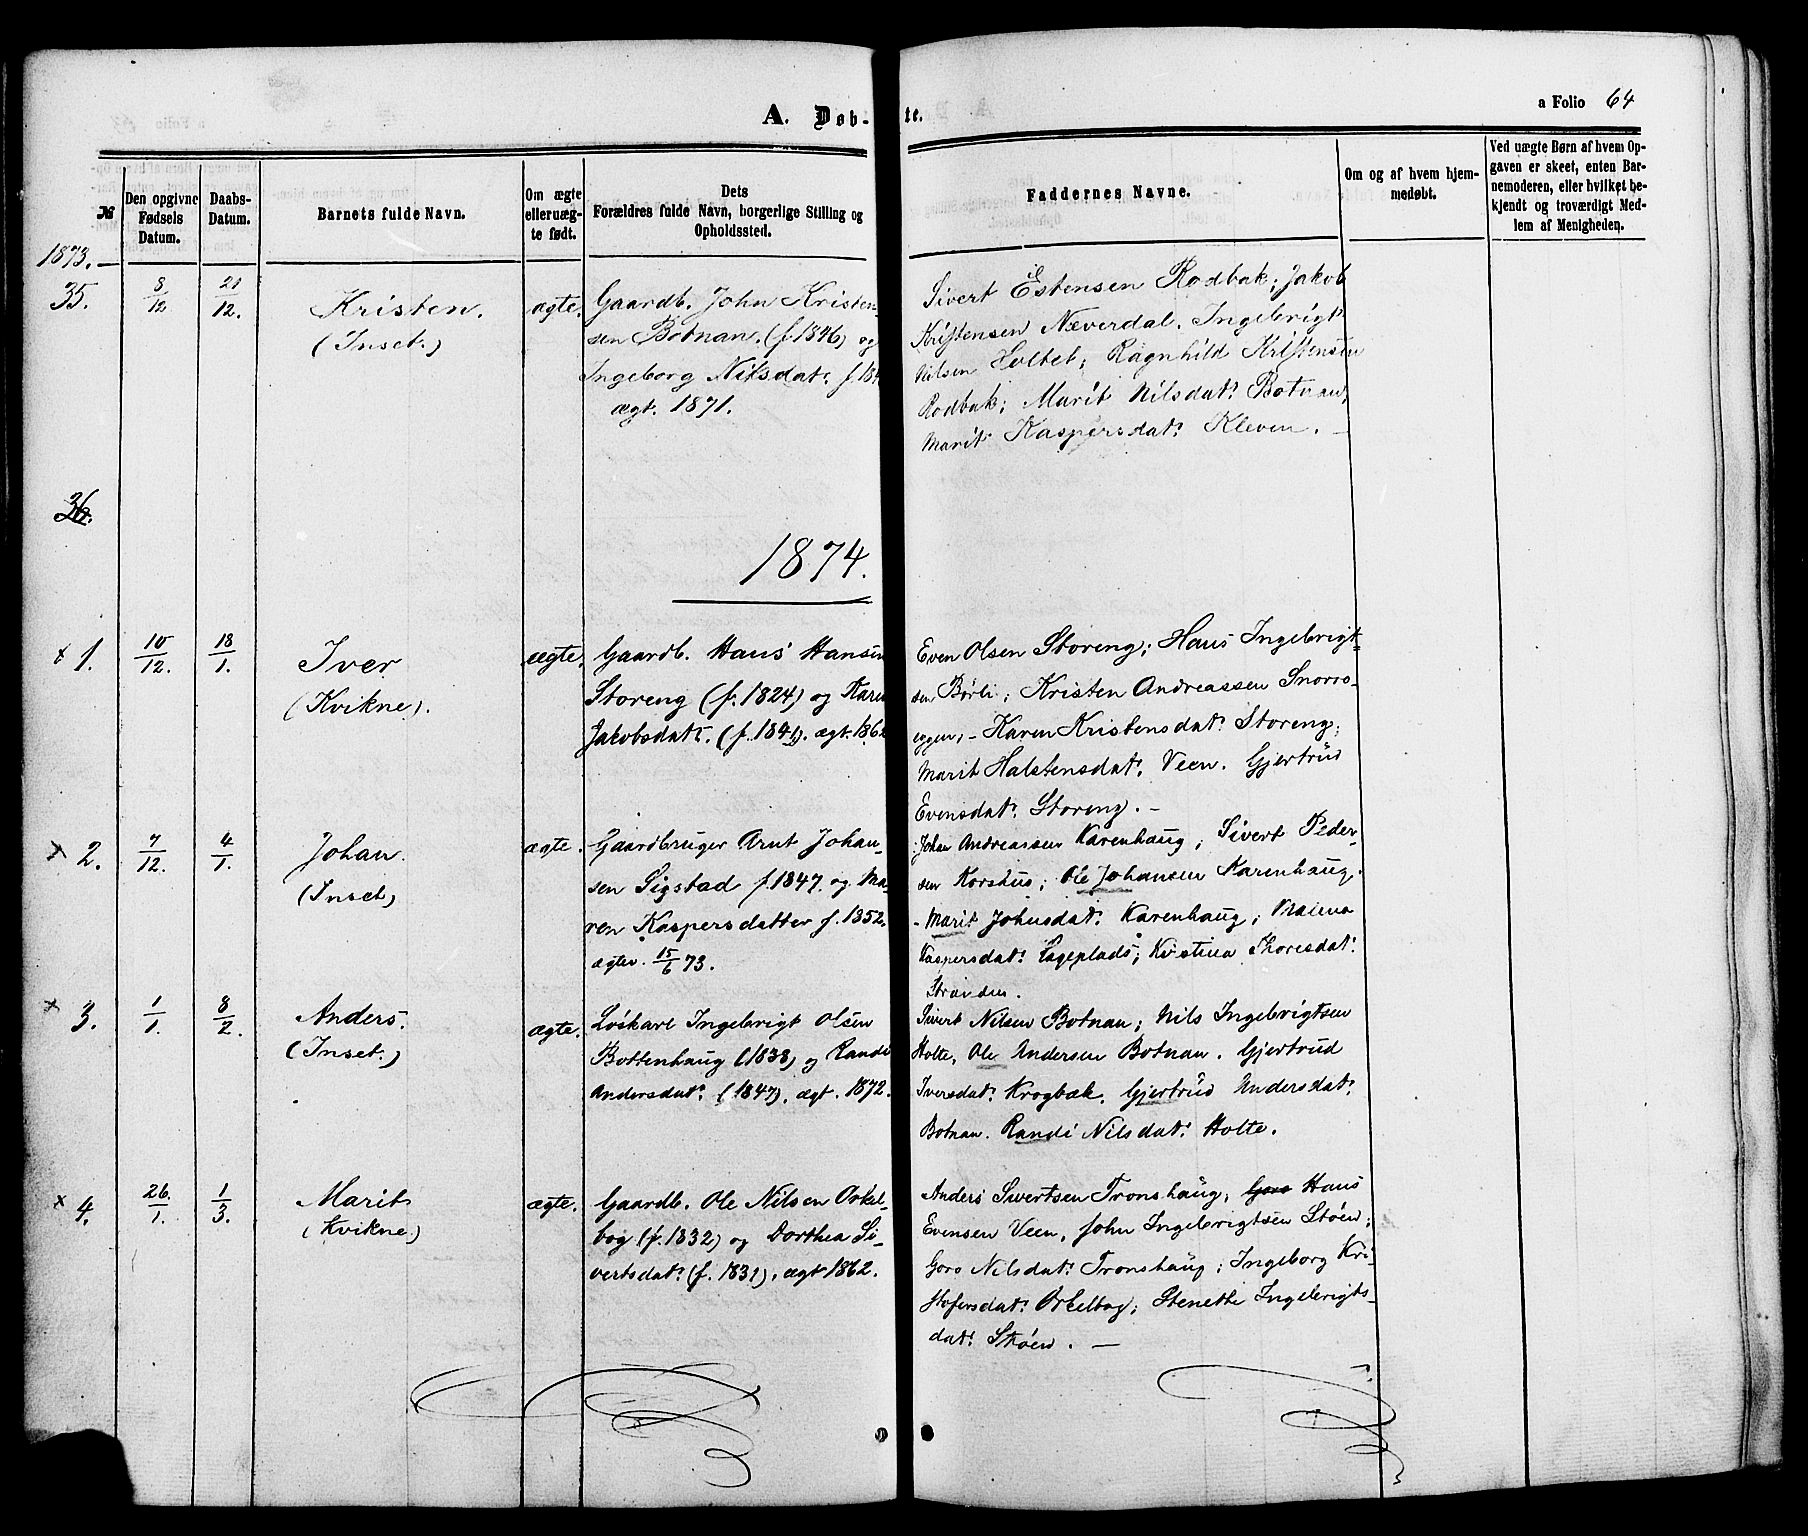 A. Døb-
te.
a Folio 64
№
Den opgivne Fødsels Datum.
Daabs-Datum.
Barnets fulde Navn.
Om ægte eller uæg-te født.
Dets Forældres fulde Navn, borgerlige Stilling og Opholdssted.
Faddernes Navne.
Om og af hvem hjem-medøbt.
Ved uægte Børn af hvem Op-gaven er skeet, enten Bar-nemoderen, eller hvilket be-kjendt og troværdigt Med-lem af Menigheden.
1873.
35.
8/12
21/12.
Kristen.
(Inset.)
ægte.
Gaardb. John Kristen-
sen Botnan. (f. 1846) og
Ingeborg Nilsdat: f. 184
ægt. 1871.
Sivert Estensen Rodbak; Jakob
Kristensen Næverdal. Ingebrigt
Nilsen Holtet; Ragnhild Kristensen
Rodbak; Marit Nilsdat: Botnan,
Marit Kaspersdat: Kleven. —
36.
1874.
x 1.
10/12.
18/1.
Iver
(Kvikne).
ægte.
Gaardb. Hans Hansen
Storeng (f. 1824) og Karen
Jakobsdatt. (f. 1841). ægt. 1862
Even Olsen Storeng; Hans Ingebrigt-
sen Børli; Kristen Andreassen Snorro-
eggen, – Karen Kristensdat: Storeng;
Marit Halstensdat. Veen. Gjertrud
Evensdat: Storeng. –
x 2.
7/12.
4/1.
Johan.
(Inset)
ægte.
Gaardbruger Arnt Johan-
sen Sigstad f. 1847. og Ma-
ren Kaspersdatter f. 1852.
ægtev. 15/6 73.
Johan Andreassen Karenhaug; Sivert Peder-
sen Korshus; Ole Johansen Karenhaug.
- Marit Johnsdat: Karenhaug; Malena
Kaspersdat: Sageplads; Kristina Thoresdat:
Stranden.
x 3.
1/1.
8/2.
Anders.
(Inset.)
ægte.
Løskarl Ingebrigt Olsen
Bottenhaug (1838) og Randi
Andersdat: (1847). ægt. 1872.
Sivert Nilsen Botnan; Nils Ingebrigtsen
Holte, Ole Andersen Botnan. Gjertrud
Iversdat: Krogbæk. Gjertrud Andersdat:
Botnan. Randi Nilsdat: Holte.
x 4.
26./1.
1/3.
Marit
(Kvikne.)
ægte.
Gaardb. Ole Nilsen Orkel-
bog (f. 1832) og Dorthea Si-
vertsdat: (f. 1831), ægt 1862.
Anders Sivertsen Tronshaug; Goro Hans
Evensen Veen, John Ingebrigtsen Støen;
Goro Nilsdat: Tronshaug; Ingeborg Kri-
stofersdat: Orkelbog; Stenette Ingebrigts-
dat: Støen. —